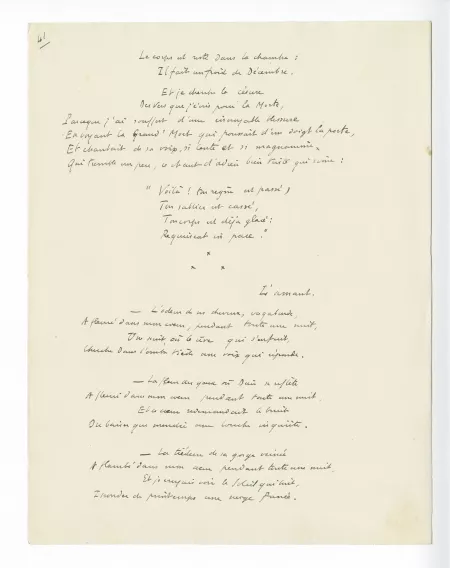 41
Le corps est resté dans la chambre :
Il fait un froid de Décembre.
Et je cherche la césure
Des vers que j'écris pour la Morte,
Parce que j'ai souffert d'une incroyable blessure
En voyant la Grand' Mort qui poussait d'un doigt la porte,
Et chantait de sa voix, si lente et si magnanime,
Qui tremble un peu, ce chant d'adieu bien triste qui :
" Voilà ! Ton règne est passé,
Ton sablier est cassé,
Ton corps est déjà glacé :
Requiescat in pace ! "
*
* *
L'amant.
— L'odeur de ses cheveux, vagabonde,
A fleuri dans mon cœur, pendant toute une nuit,
Une nuit où le rêve qui s'enfuit,
Cherche dans l'ombre une voix qui réponde.
— La fleur des yeux où Dieu a reflété
A fleuri dans mon cœur pendant toute une nuit,
Et le cœur me demandait le bruit
Du baiser que mendie une bouche inquiète.
— La tiédeur de sa gorge veinée
A flambé dans mon cœur pendant toute une nuit,
Et je croyais voir le Soleil qui luit,
Inonder de printemps une vierge fanée.